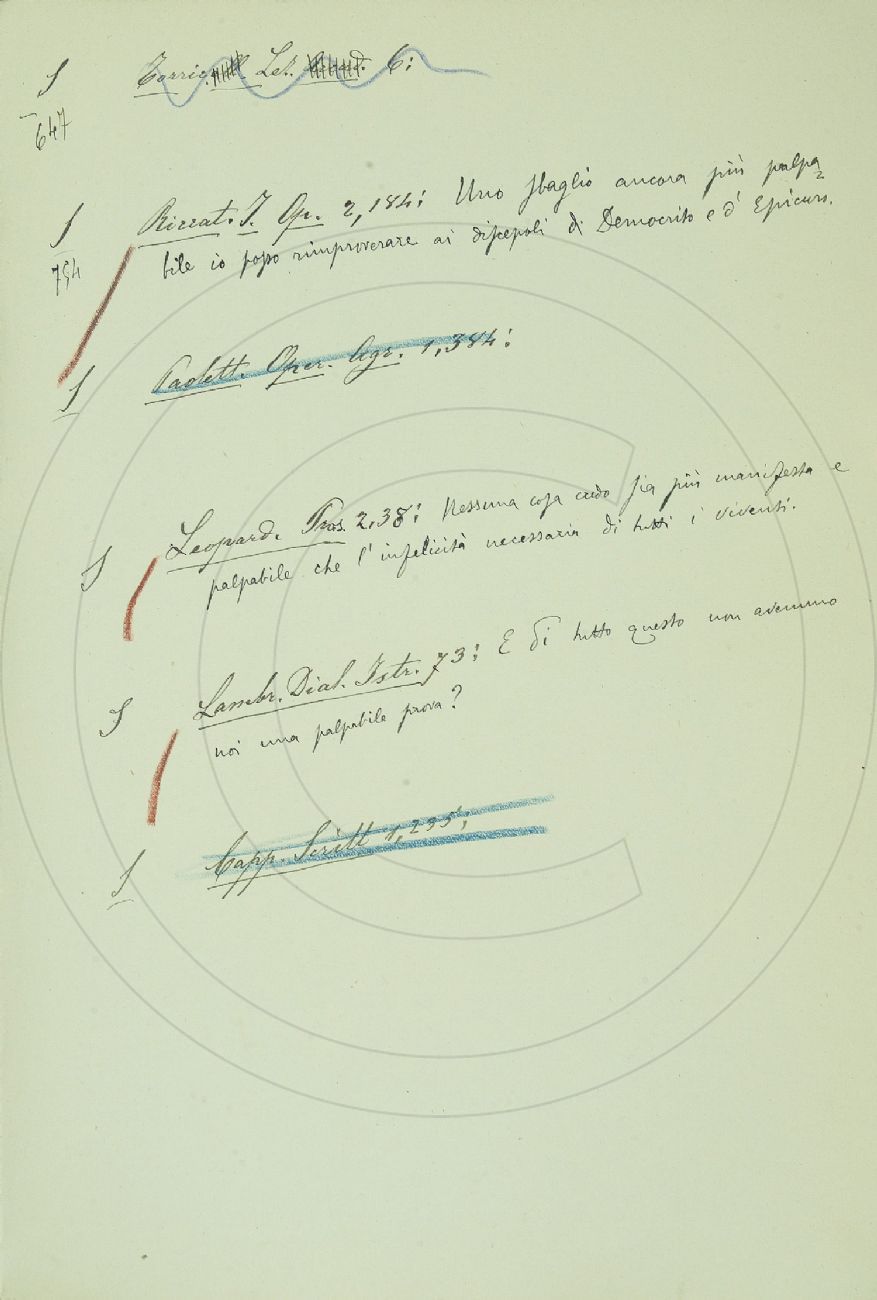 S Torric. Lez. 6:
647
S Riccat. J. Op. 2,184: Uno sbaglio ancora più palpa-
754 bile io posso rimproverare ai discepoli di Democrito e d' Epicuro.
S Paolett. Oper. Agr. 1,384:
S Leopard. Pros. 2,38: Nessuna cosa credo sia più manifesta e
palpabile che l'infelicità necessaria di tutti i viventi.
S Lambr. Dial. Istr. 73: E di tutto questo non avemmo
noi una palpabile prova?
S Capp. Scritt. 1,235: